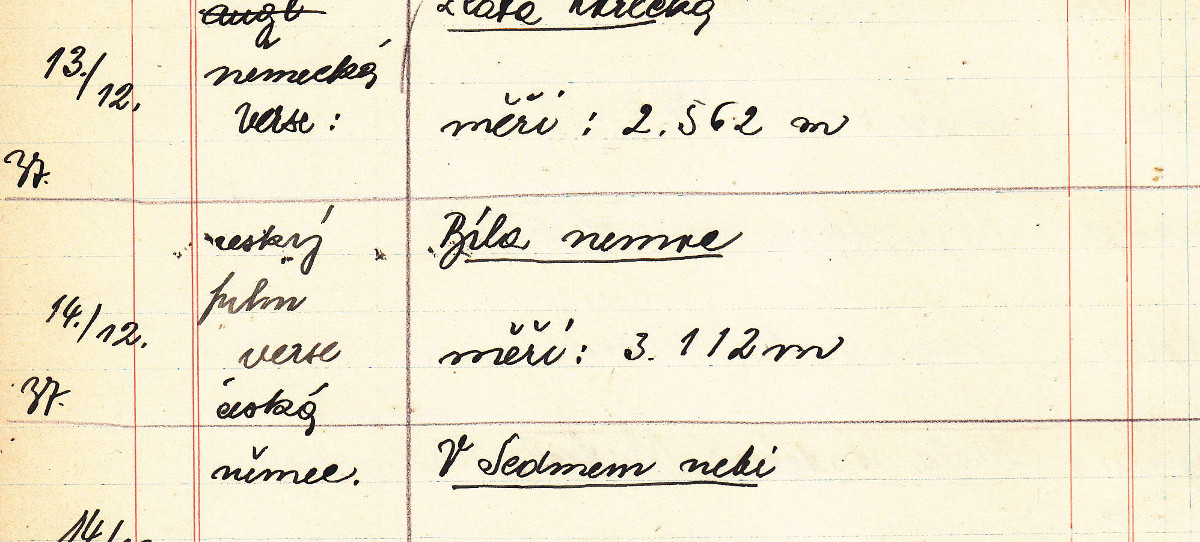 angl
13./12. nemecká
verse: měří: 2.562 m
37.
český Bílá nemoc
film
14./12. verse měří: 3.112 m
37. česká
němec. V Sedmem nebi
14/